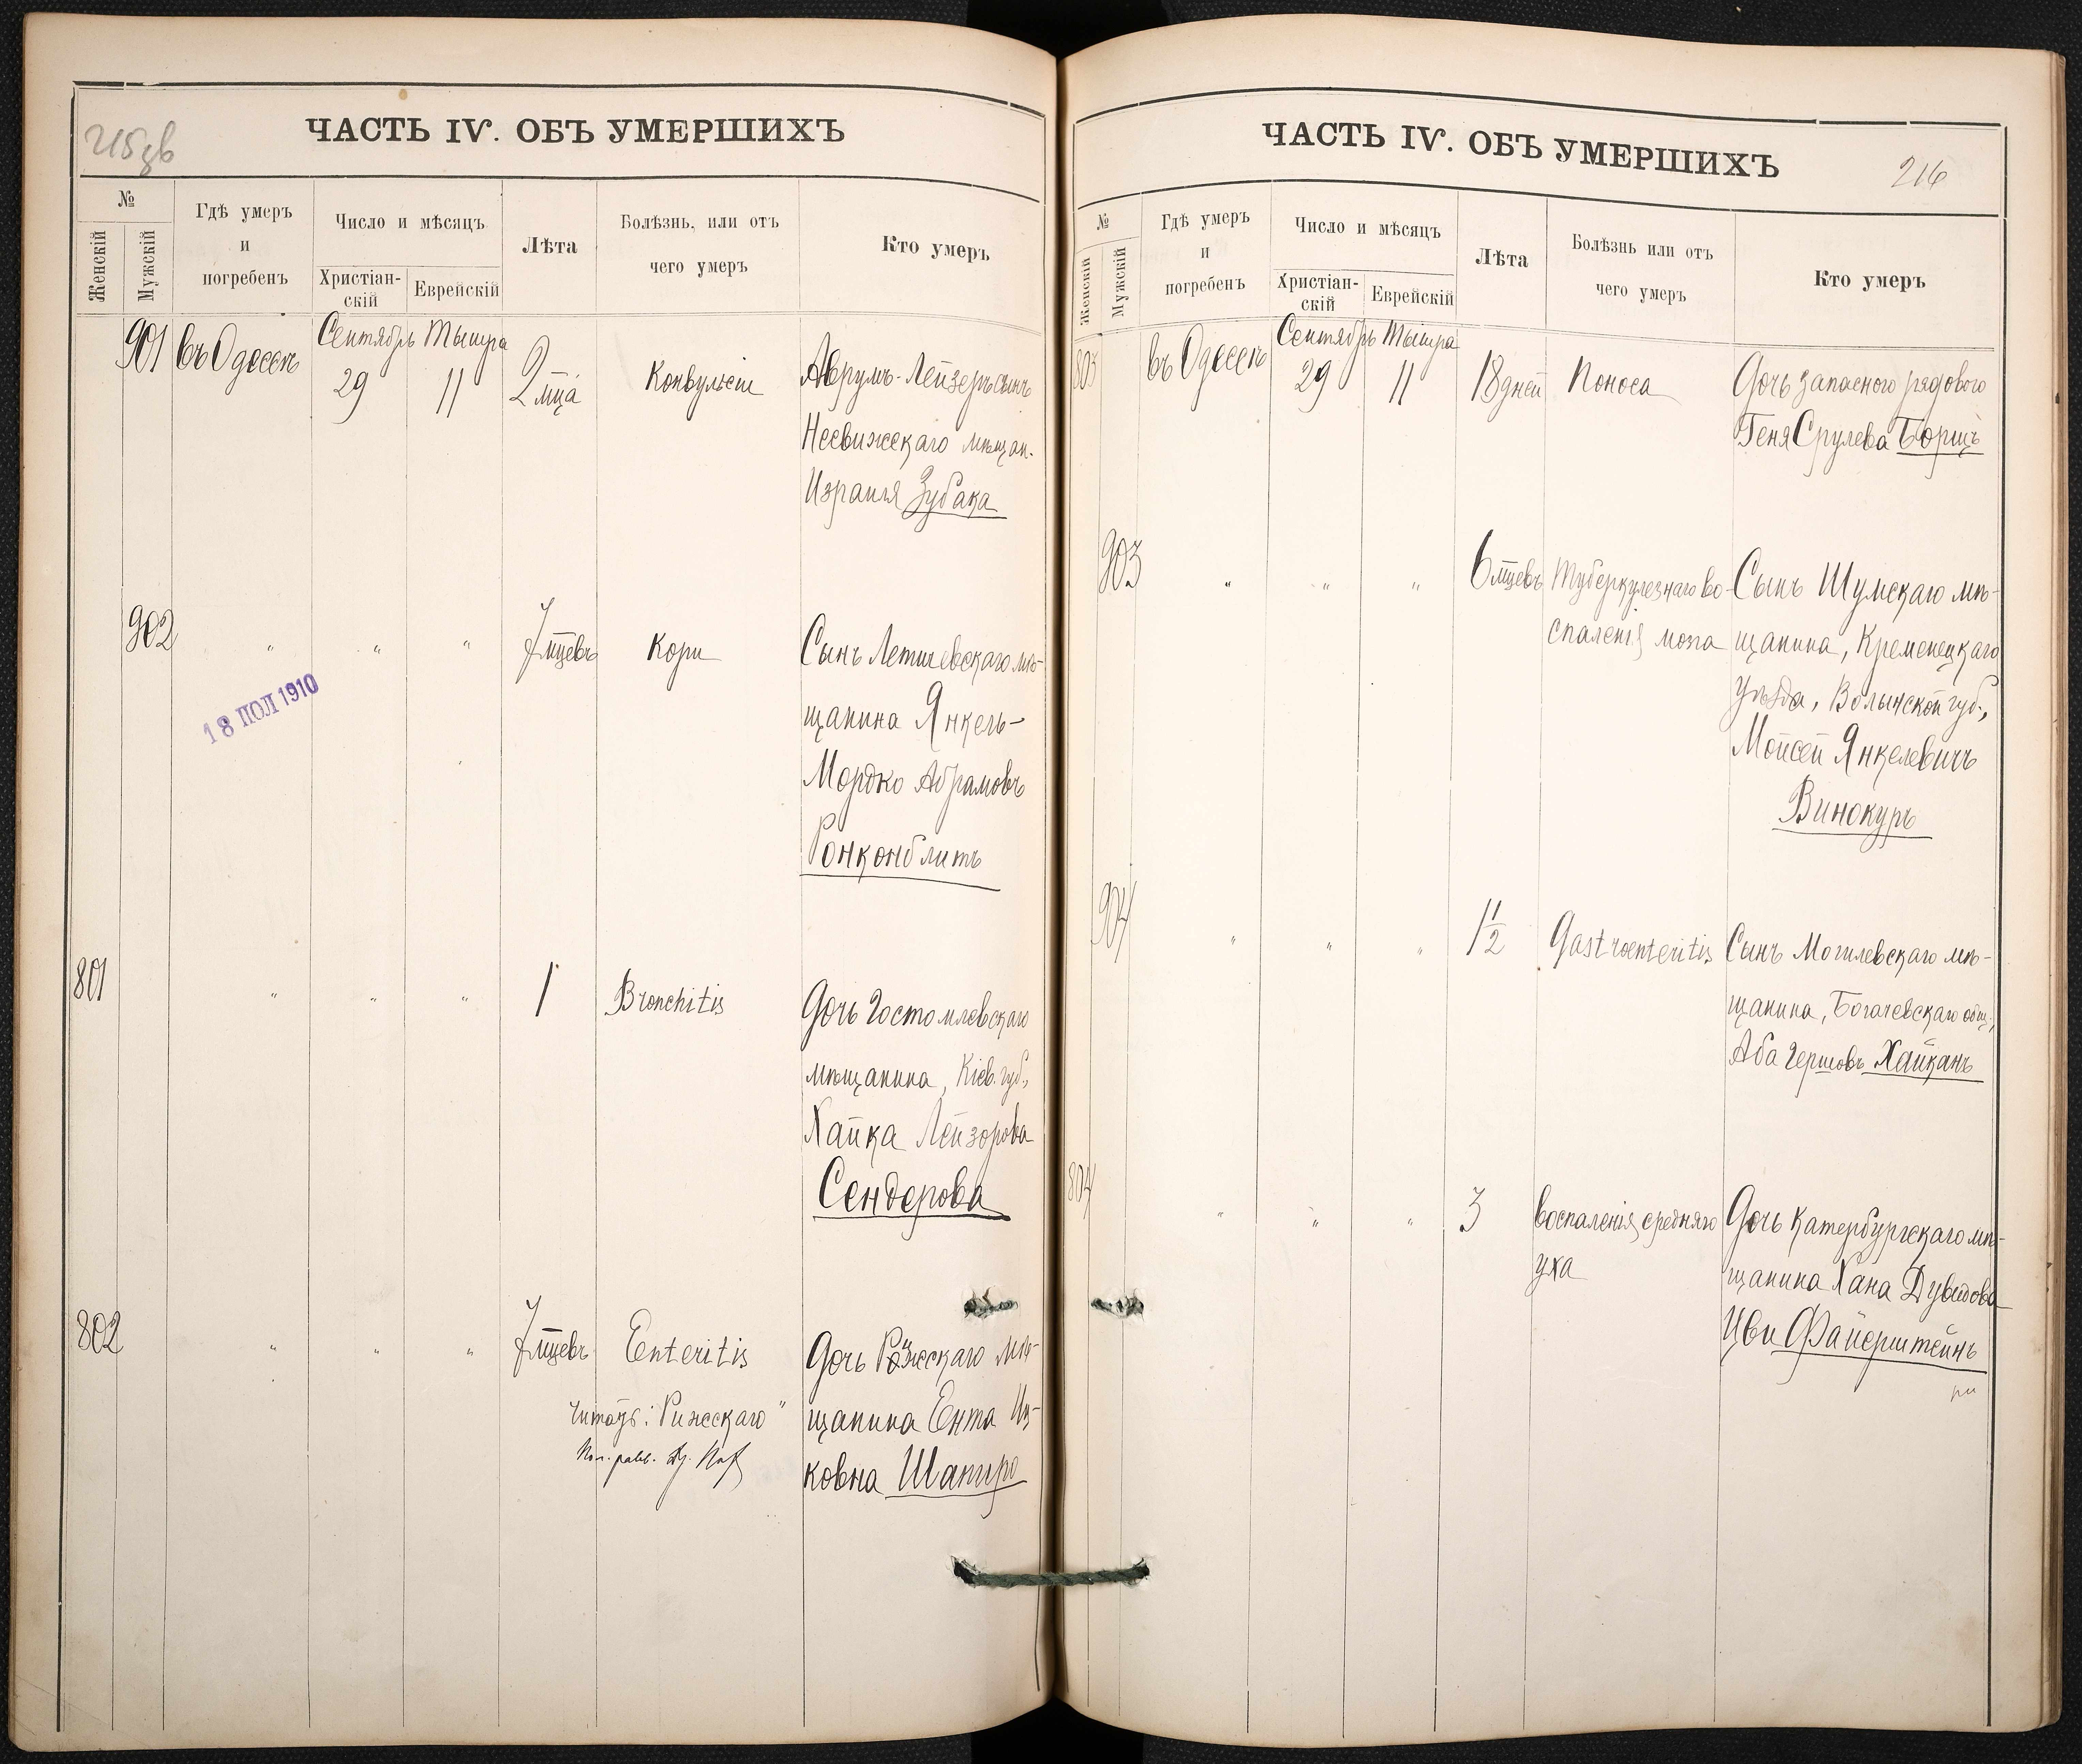 215 зв
ЧАСТЬ IV. ОБЪ УМЕРШИХЪ
№
Женскій
Мужскій
Гдѣ умеръ
и
погребенъ
Число и мѣсяцъ
Христіан-
скій
Еврейскій
Лѣта
Болѣзнь, или отъ
чего умеръ
Кто умеръ
Сентябрь Тышра
901 въ Одессѣ 29 11 2 мца Конвульсіи Аврумъ-Лейзеръ сынъ
Несвижскаго мѣщан.
Израиля Зубака
902 " " " 7 мцевъ Кори Сынъ Летичевскаго мѣ-
щанина Янкель-
Мордко Абрамовъ
Ронконблитъ
18 ПОЛ 1910
801 " " " 1 Bronchitis Дочь Гостомлевскаго
мѣщанина, Кіев. губ.,
Хайка Лейзорова
Сендерова
802 " " " 7 мцевъ Enteritis Дочь мѣ-
Читать: Рижскаго" щанина Ента Иц-
ковна Шапиро
ЧАСТЬ IV. ОБЪ УМЕРШИХЪ
216
№
Женскій
Мужскій
Гдѣ умеръ
и
погребенъ
Число и мѣсяцъ
Христіан-
скій
Еврейскій
Лѣта
Болѣзнь или отъ
чего умеръ
Кто умеръ
Сентябрь Тышра
803 въ Одессѣ 29 11 18 дней Поноса Дочь запасного рядового
Геня Срулева Борщъ
903 " " " 6 мцевъ Туберкулезнаго во- Сынъ Шумскаго мѣ-
спаленія мозга щанина, Кременецкаго
уѣзда, Волынской губ.,
Мойсей Янкелевичъ
Винокуръ
904 " " " 1 1/2 Gastroenteritis Сынъ Могилевскаго мѣ-
щанина, Богачевскаго общ.,
Аба Гершовъ Хайканъ
804 " " " 3 Воспаленія средняго Дочь Катербургскаго мѣ-
уха щанина Хана Дувидова
Цви Файерштейнъ